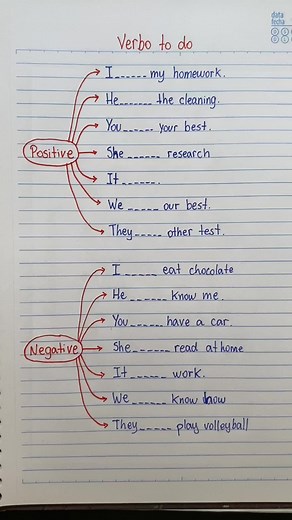 data
fecha
Verbo to do
Positive
I______ my homework.
He_______ the cleaning.
You______ your best.
She ______ research
It ______.
We _____ our best.
They_____ other test.
Negative
I ______ eat chocolate
He ______ know me.
You______ have a car.
She_______ read at home
It ______ work.
We ______ know how
They_____ play volleyball